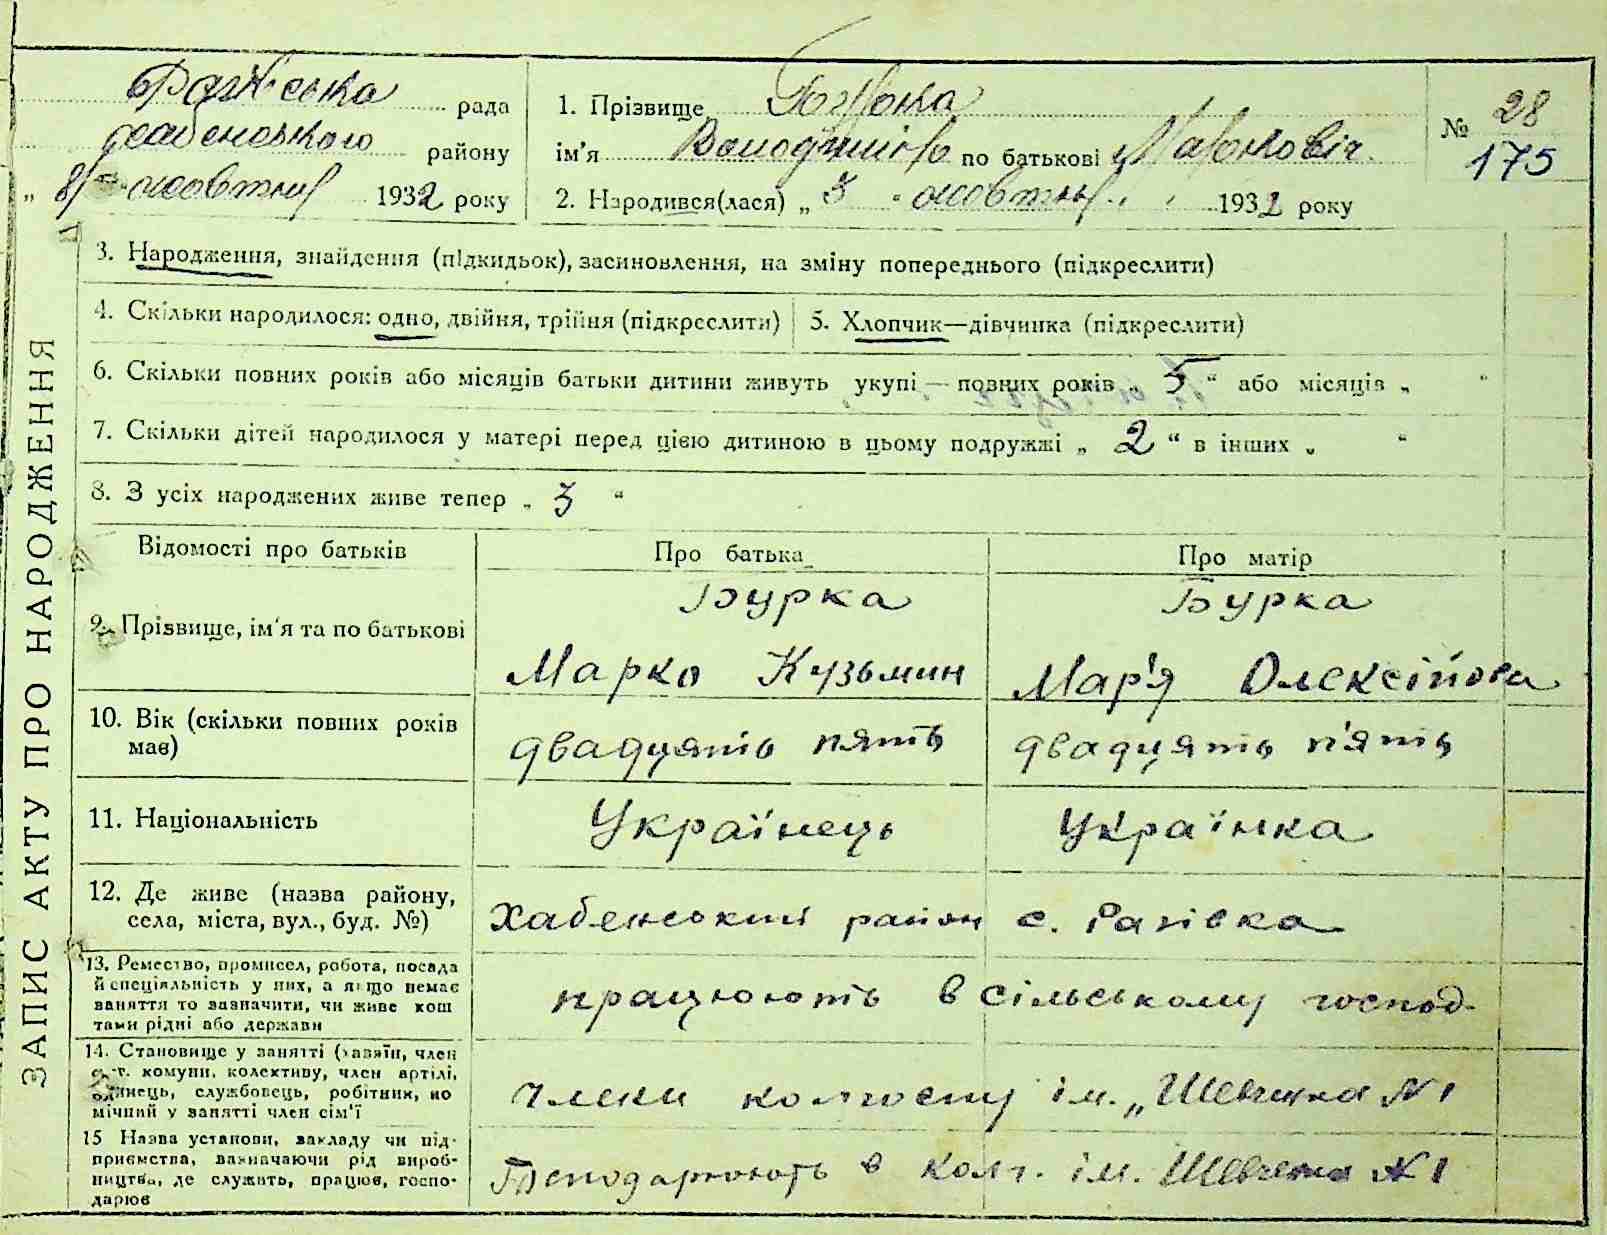 Рагівська рада
Хабенського району
„ 8 " жовтня 1932 року
1. Прізвище Бурка
ім'я Володимір по батькові Маркович
2. Народився(лася) „ 3 " жовтня 1932 року
№ 28
175
ЗАПИС АКТУ ПРО НАРОДЖЕННЯ
3. Народження, знайдення (підкидьок), засиновлення, на зміну попереднього (підкреслити)
4. Скільки народилося: одно, двійня, трійня (підкреслити) 5. Хлопчик—дівчинка (підкреслити)
6. Скільки повних років або місяців батьки дитини живуть укупі — повних років „ 5 “ або місяців „ “
7. Скільки дітей народилося у матері перед цією дитиною в цьому подружжі „ 2 “ в інших „ “
8. З усіх народжених живе тепер „ 3 “
Відомості про батьків Про батька Про матір
9. Прізвище, ім'я та по батькові
Бурка Бурка
Марко Кузьмин Мар'я Олексіїова
10. Вік (скільки повних років
має)
двадцять пять двадцять п'ять
11. Національність Українець Українка
12. Де живе (назва району,
села, міста, вул., буд. №)
Хабенський район с. Рагівка
13. Ремество, промисел, робота, посада
й спеціяльність у них, а якщо немає
заняття то зазначити, чи живе кош
тами рідні або держави
працюють в сільському господ.
14. Становище у занятті (хазяїн, член
с.-г. комуни, колективу, член артілі,
одинець, службовець, робітник, по
мічний у занятті член сім'ї
члени колгоспу ім. „Шевченка №1
15 Назва установи, закладу чи під-
приємства, вазначаючи рід вироб-
ництва, де служить, працює, госпо-
дарює
Господарюють в колг. ім. Шевченка №1